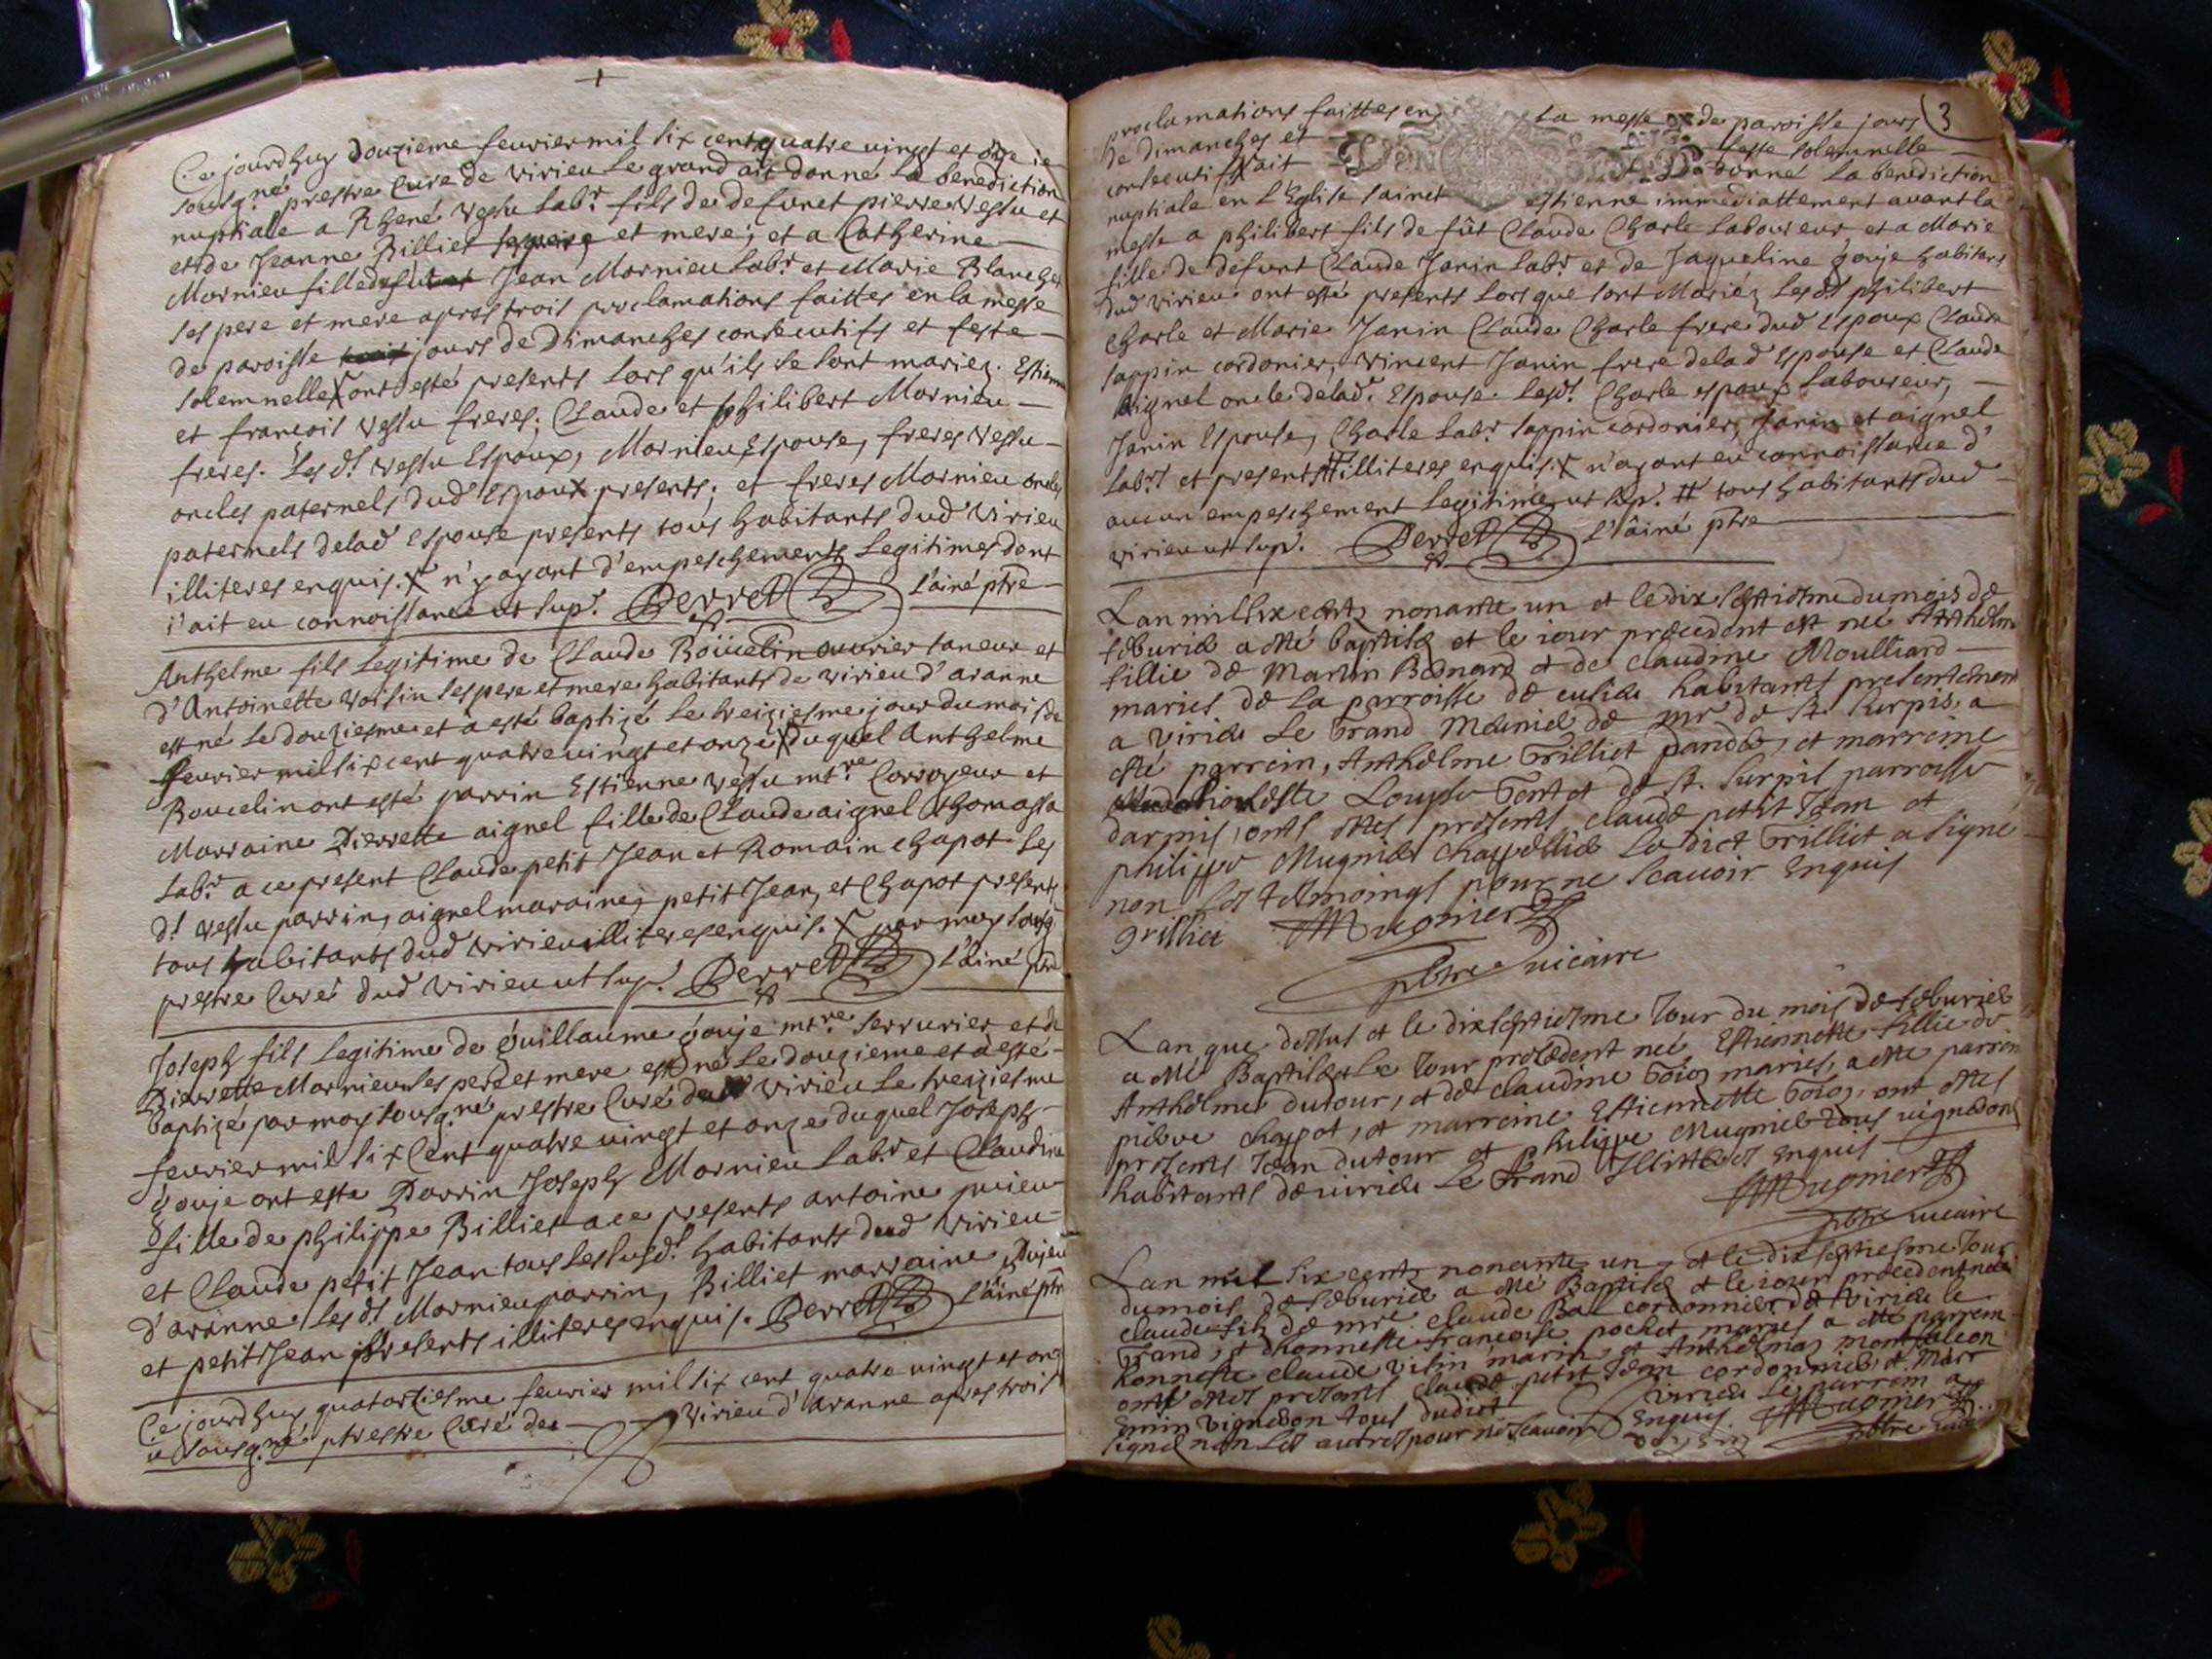 Ce jourdhuy douzieme feuvrier mil six cent quatre vingt et onze ie
sousg.né prestre Curé de virieu le grand ait donné la benediction
nuptiale a Rhené vessu lab.r fils de defunct pierre vessu et
et de Jeanne Billiet et mere; et a Catherine
Mornieu fille Jean Mornieu lab.r et Marie Blanchet
ses pere et mere apres trois proclamations faittes en la messe
de paroisse jours de Dimanches consecutifs et feste
solemnelle X ont esté presents lors qu'ils se sont mariez. Estienne
et francois vessu freres; Claude et philibert Mornieu
freres. Les d.t vessu Espoux, Mornieu Espouse, freres vessu
oncles paternels dud Espoux presents; et freres Mornieu oncles
paternels delad Espouse presents tous habitants dud virieu
illiteres enquis. X n'y ayant d'empeschements legitimes dont
i'ait eu connoissance ut sup.r Perret L'ainé ptre
Anthelme fils legitime de Claude Roucelin ouvrier taneur et
d'Antoinette Voisin ses pere et mere habitants de virieu d'aranne
est né le douziesme et a esté baptizé le treiziesme jour du mois de
feuvrier mil six cent quatre vingt et onze X Duquel Anthelme
Roucelin ont esté parrin Estienne vessu mt.re Corroyeur et
Marraine Pierrette aignel fille de Claude aignel thomassa
lab.r a ce present Claude petit Jean et Romain chapot les
d.t vessu parrin, aignel maraine, petit Jean, et Chapot presents
tous habitants dud virieu illiteres enquis. X par moy sousg.
prestre Curé dud virieu ut sup.r Perret L'ainé ptre
Joseph fils legitime de guillaume gouje mt.re serrurier et de
Pierrette Mornieu ses pere et mere est né le douzieme et a esté
baptizé par moy sousg.né prestre Curé dud virieu le treiziesme
feuvrier mil six Cent quatre vingt et onze duquel Joseph
gouje ont esté Parrin Joseph Mornieu lab.r et Claudine
fille de philippe Billiet a ce presents antoine
et Claude petit Jean tous les susd.t habitants dud virieu
d'aranne les d.t Mornieu parrin, Billiet marraine
et petit Jean presents illiteres enquis. Perret L'ainé ptre
Ce jourdhuy quatorziesme feuvrier mil six cent quatre vingt et onze
ie sousg.né prestre Curé de virieu d'aranne apres trois
3
proclamations faittes en la messe de paroisse jours
de dimanches et feste solemnelle
consecutifs X ait donné la benediction
nuptiale en l'Eglise sainct estienne immediattement avant la
messe a philibert fils de fût Claude Charle laboureur et a Marie
fille de defunt Claude Janin lab.r et de Jaqueline gouje habitans
dud virieu ont esté presents lors que sont Mariéz les d.t philibert
Charle et Marie Janin Claude Charle frere dud Espoux Claude
sappin cordonier, vincent Janin frere de lad Espouse et Claude
Aignel oncle de lad.e Espouse. lesd.t Charle espoux laboureur,
Janin Espouse, Charle lab.r sappin cordonier, Janin et aignel
lab.rs et presents # illiteres enquis. X n'ayant eu connoissance d'
aucun empeschement legitime ut sup.r # tous habitants dud
virieu ut sup.r Perret L'ainé ptre
Lan mil six cents nonante un et le dix septiesme du mois de
feburier a esté baptisé et le iour precedent est né Anthelme
fillie de Martin Bonard et de claudine Moulliard
mariés de la parroisse de habitants presentement
a virieu le Grand de mr de St. Surpis, a
esté parrein, Anthelme Trilliet et marreine
Louyse de St. Surpis parroisse
ont estes presents claude petit Jean et
philippe Mugnier Le dict Trilliet a signé
non les tesmoings pour ne scauoir Enquis
Grilliet MMugnier
pbtre vicaire
Lan que dessus et le dixseptiesme Jour du mois de feburier
a esté Baptisée le Jour precedent née Estiennette fillie de
Anthelme dutour, et de claudine Goioz mariés, a esté parrein
pierre chapot, et marreine Estiennette Goioz, ont estes
presents Jean dutour et philippe Mugnier tous vignerons
habitants de virieu le Grand Illitteres Enquis
MMugnier
pbtre vicaire
Lan mil six cents nonante un, et le dix septiesme Jour
du mois de feburier a esté Baptisé et le iour precedent né
claude fils de mre claude Bal cordonnier de virieu le
Grand, et dhonneste francoise pochet mariés a esté parrein
honneste claude marin, et Anthelma montfalcon
ont estes presents claude petit Jean cordonnier, et Marc
vigneron tous dudict virieu le parrein a
signé non les autres pour ne scauoir Enquis. MMugnier
pbtre